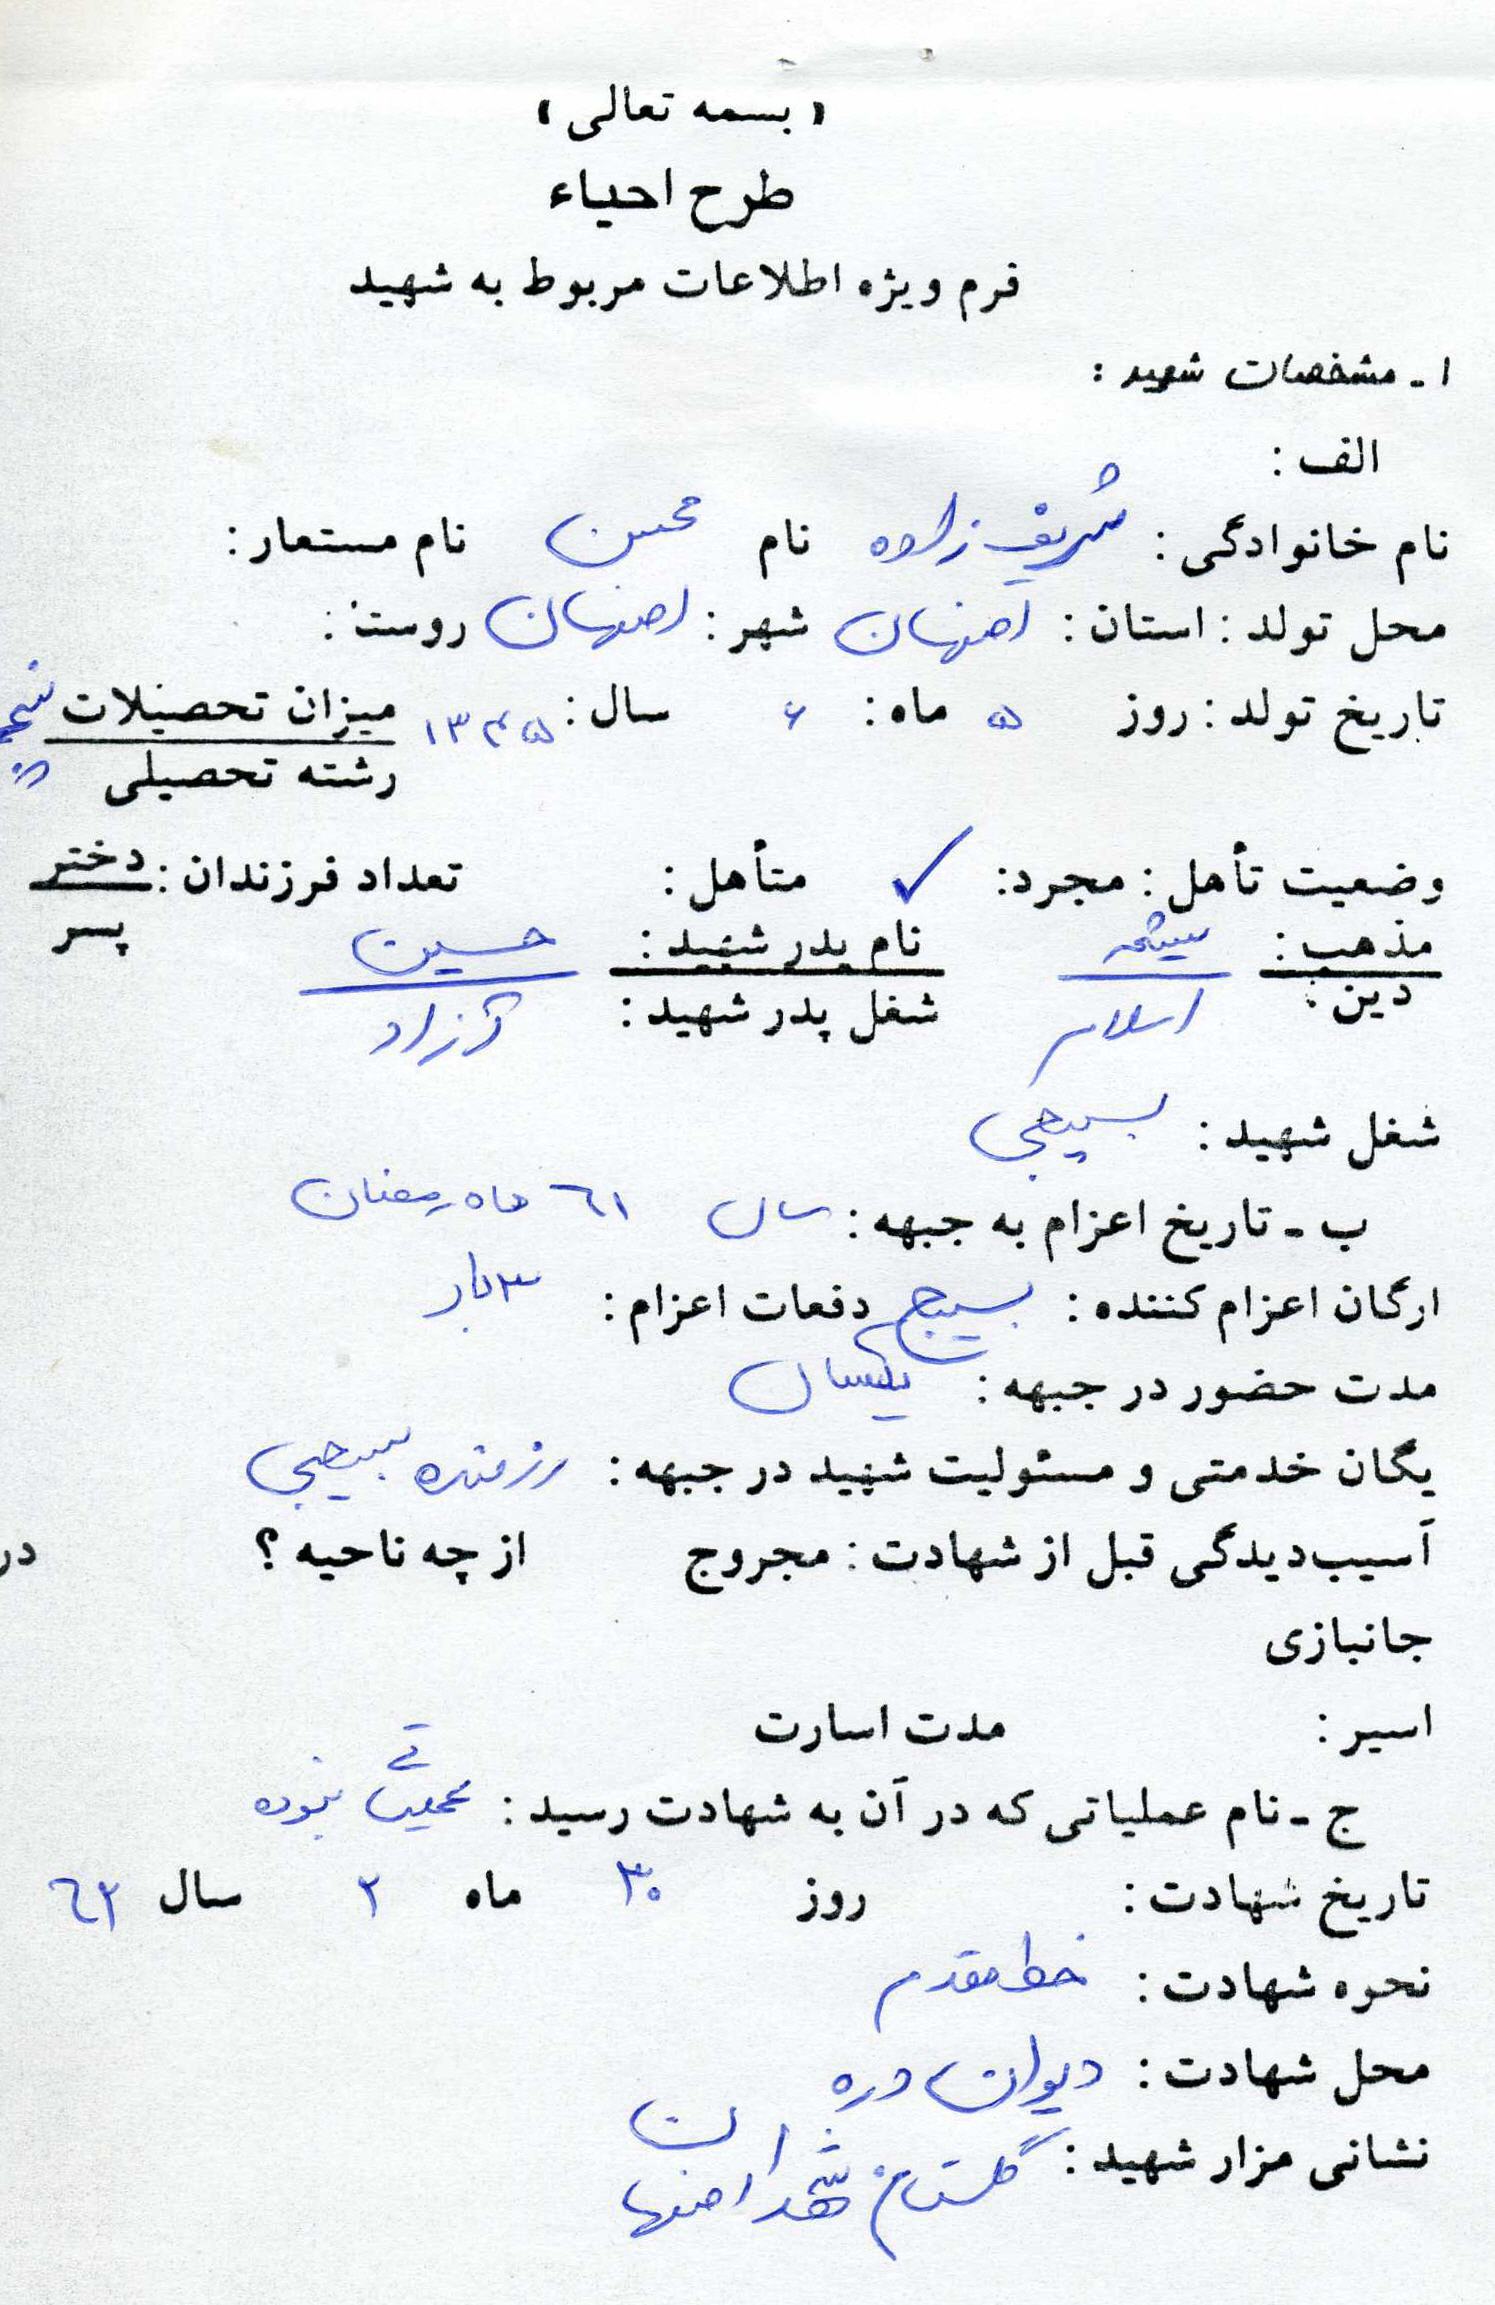 « بسمه تعالی »
طرح احیاء
فرم ویژه اطلاعات مربوط به شهید
۱ ـ مشخصات شهید :
الف :
نام خانوادگی : شریف زاده نام محسن نام مستعار :
محل تولد : استان : اصفهان شهر : اصفهان روستا :
تاریخ تولد : روز ۵ ماه : ۶ سال : ۱۳۴۵ میزان تحصیلات
رشته تحصیلی
وضعیت تأهل : مجرد: ✓ متأهل : تعداد فرزندان : دختر
پسر
مذهب : شیعه نام پدر شهید : حسین
دین : اسلام شغل پدر شهید : آزاد
شغل شهید : بسیجی
ب ـ تاریخ اعزام به جبهه : سال ٦١ ماه رمضان
ارگان اعزام کننده : بسیج دفعات اعزام : ۳ بار
مدت حضور در جبهه : یکسال
یگان خدمتی و مسئولیت شهید در جبهه : رزمنده بسیجی
آسیب‌دیدگی قبل از شهادت : مجروح از چه ناحیه ؟ در
جانبازی
اسیر : مدت اسارت
ج ـ نام عملیاتی که در آن به شهادت رسید : عملیاتی نبوده
تاریخ شهادت : روز ۳۰ ماه ۲ سال ٦٢
نحوه شهادت : خط مقدم
محل شهادت : دیوان دره
نشانی مزار شهید : گلستان شهدا اصفهان